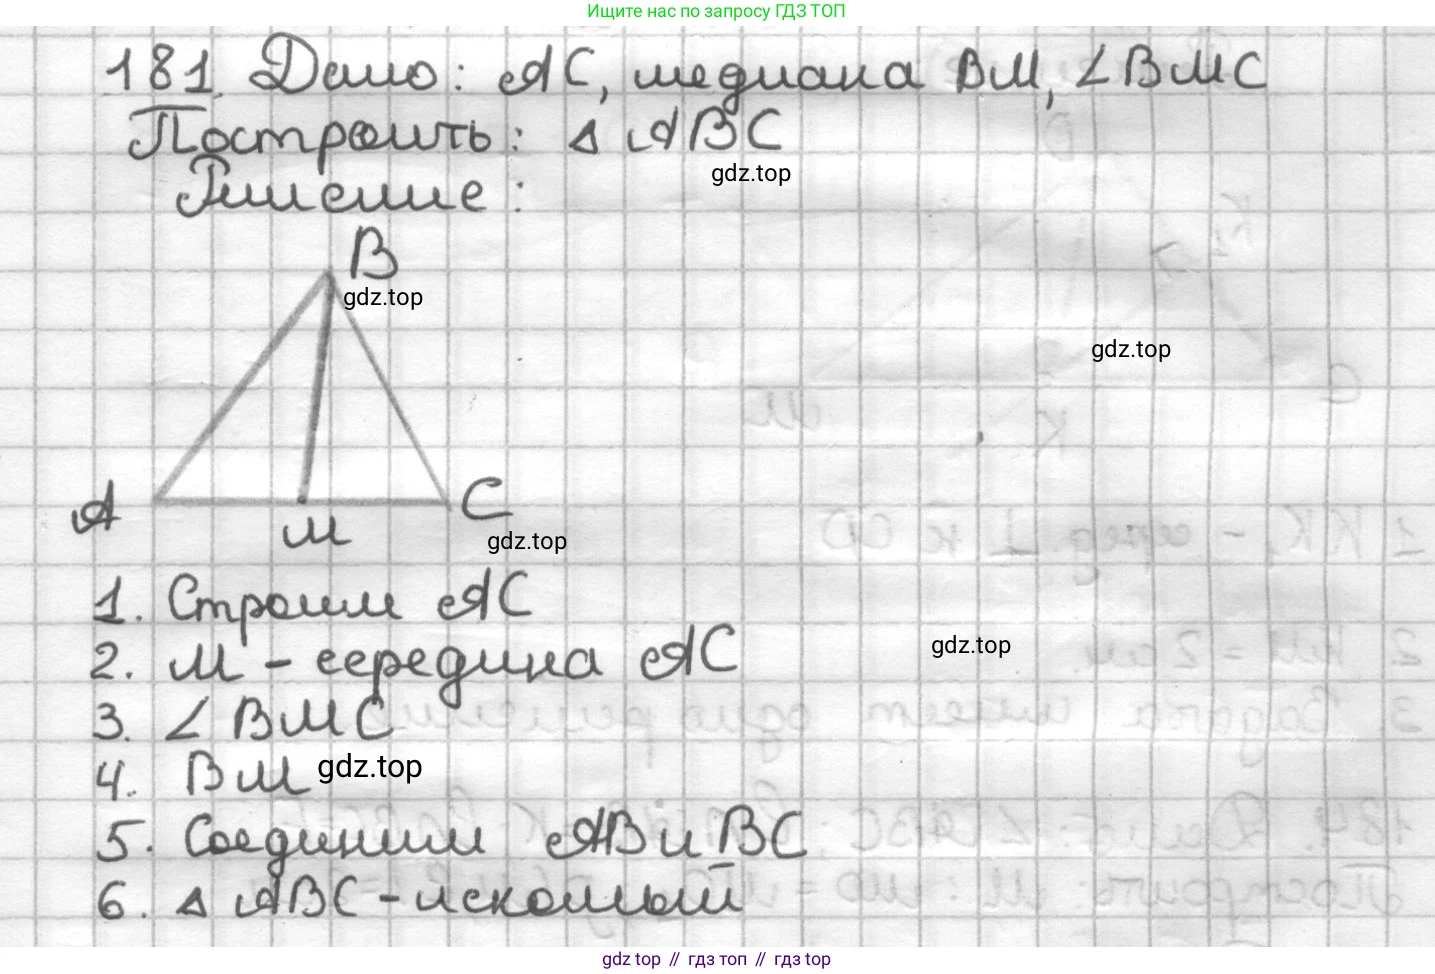 Ищите нас по запросу ГДЗ ТОП
181. Дано: AC, медиана BM, ∠BMC
Построить: △ ABC
gdz.top
Решение:
B
gdz.top
gdz.top
A
M
C
gdz.top
1. Строим AC
2. M - середина AC
gdz.top
3. ∠ BMC
4. BM
gdz.top
5. Соединим AB и BC
6. △ ABC - искомый
gdz top // гдз топ // гдз top